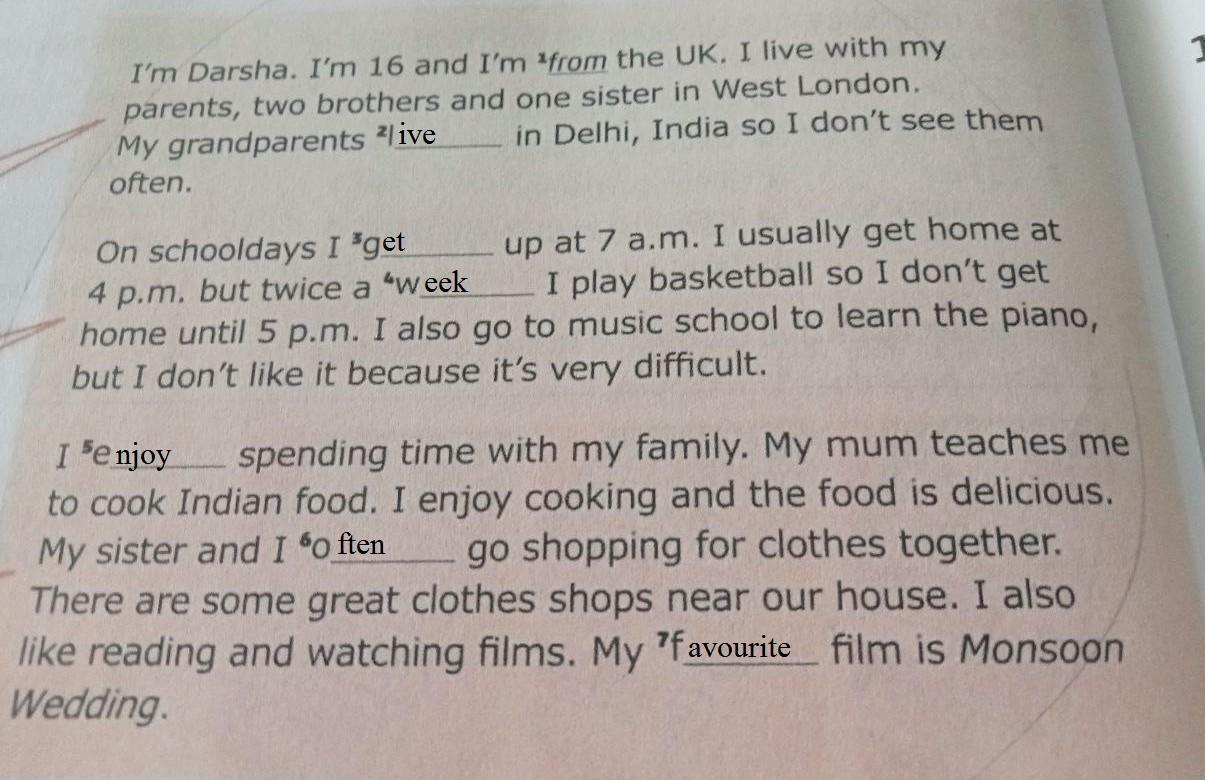 I'm Darsha. I'm 16 and I'm ¹from the UK. I live with my
parents, two brothers and one sister in West London.
My grandparents ²live in Delhi, India so I don't see them
often.
On schooldays I ³get up at 7 a.m. I usually get home at
4 p.m. but twice a ⁴week I play basketball so I don't get
home until 5 p.m. I also go to music school to learn the piano,
but I don't like it because it's very difficult.
I ⁵enjoy spending time with my family. My mum teaches me
to cook Indian food. I enjoy cooking and the food is delicious.
My sister and I ⁶often go shopping for clothes together.
There are some great clothes shops near our house. I also
like reading and watching films. My ⁷favourite film is Monsoon
Wedding.